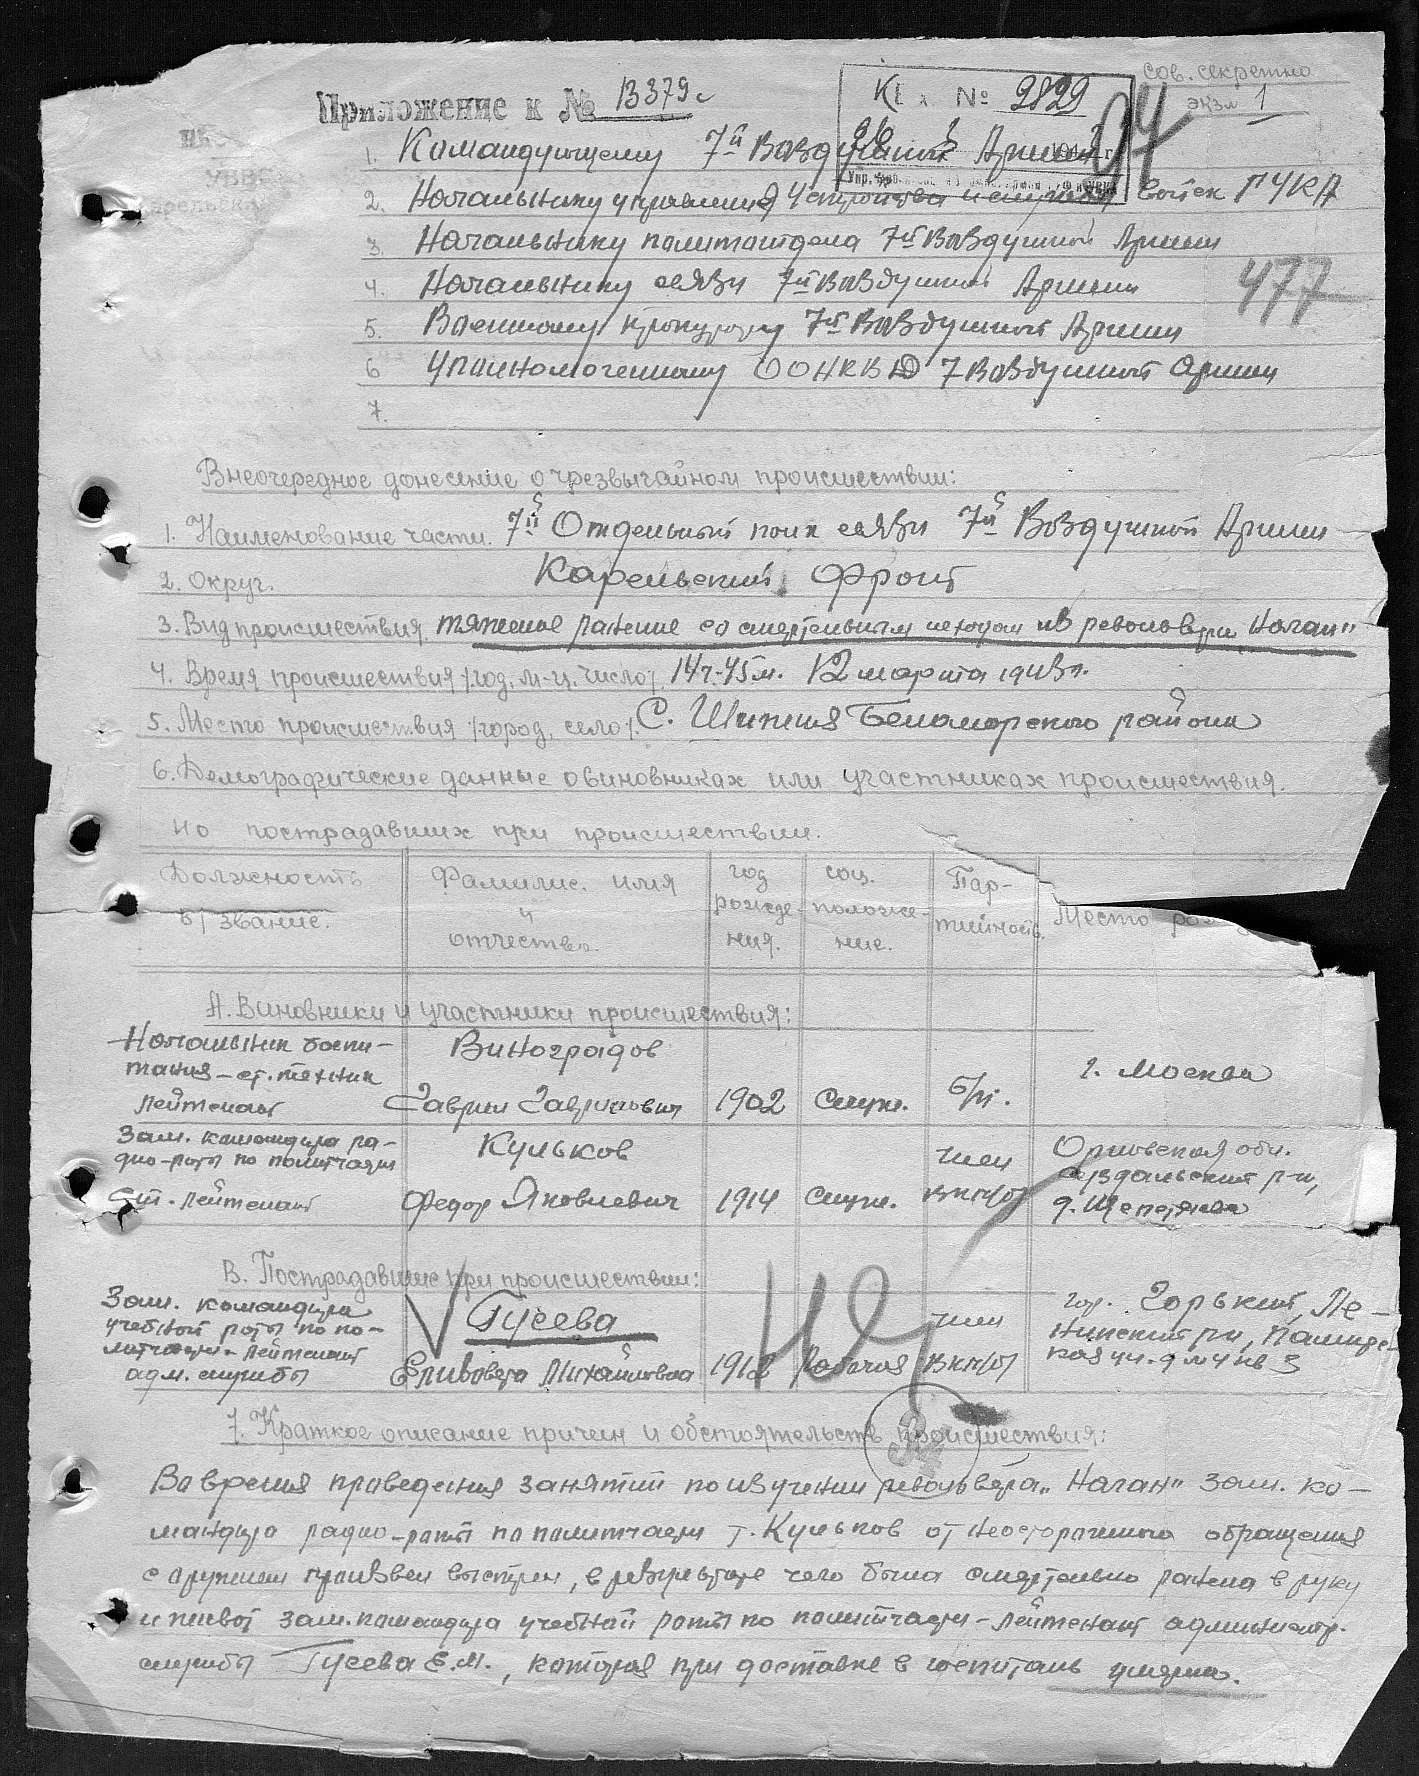 сов. секретно
экз. 1
Приложение к № 13379с
Вх. № 2829
94
1. Командующему 7й Воздушной Армией
2. Начальнику управления Устройства и службы войск ГУКА
3. Начальнику политотдела 7й Воздушной Армии
4. Начальнику связи 7й Воздушной Армии
477
5. Военному прокурору 7й Воздушной Армии
6 Уполномоченному ООНКВД 7 Воздушной Армии
7.
Внеочередное донесение о чрезвычайном происшествии:
1. Наименование части. 7й Отдельный полк связи 7й Воздушной Армии
2. Округ. Карельский Фронт
3. Вид происшествия тяжелое ранение со смертельным исходом из револьвера „Наган"
4. Время происшествия /год, м-ц, число/. 14ч.-45м. 12 марта 1943г.
5. Место происшествия /город, село/. С. Шижня Беломорского района
6. Демографические данные о виновниках или участниках происшествия.
и о пострадавших при происшествии.
Должность в/звание. Фамилия, имя и отчество. год рождения. соц. положение. Партийность. Место
А. Виновники и участники происшествия:
Начальник боепи-
тания – ст. техник
лейтенант
Виноградов
Гаврил Гаврилович 1902 Служ. б/п. г. Москва
Зам. командира ра-
дио-роты по политчасти
Ст. лейтенант
Кульков
Федор Яковлевич 1914 Служ. член ВКП/б/
Орловская обл.
р-н,
д.
В. Пострадавшие при происшествии:
Зам. командира
учебной роты по по-
литчасти – лейтенант
адм. службы
Гусева
Елизавета Михайловна 1912 Рабочая член ВКП/б/
гор. Горький, Ле-
нинский р-н,
7. Краткое описание причин и обстоятельств происшествия:
34
Во время проведения занятий по изучении револьвера „Наган" зам. ко-
мандира радио-роты по политчасти т. Кульков от неосторожного обращения
с оружием произвел выстрел, в результате чего была смертельно ранена в руку
и живот зам. командира учебной роты по политчасти – лейтенант администр.
службы Гусева Е.М., которая при доставке в госпиталь умерла.